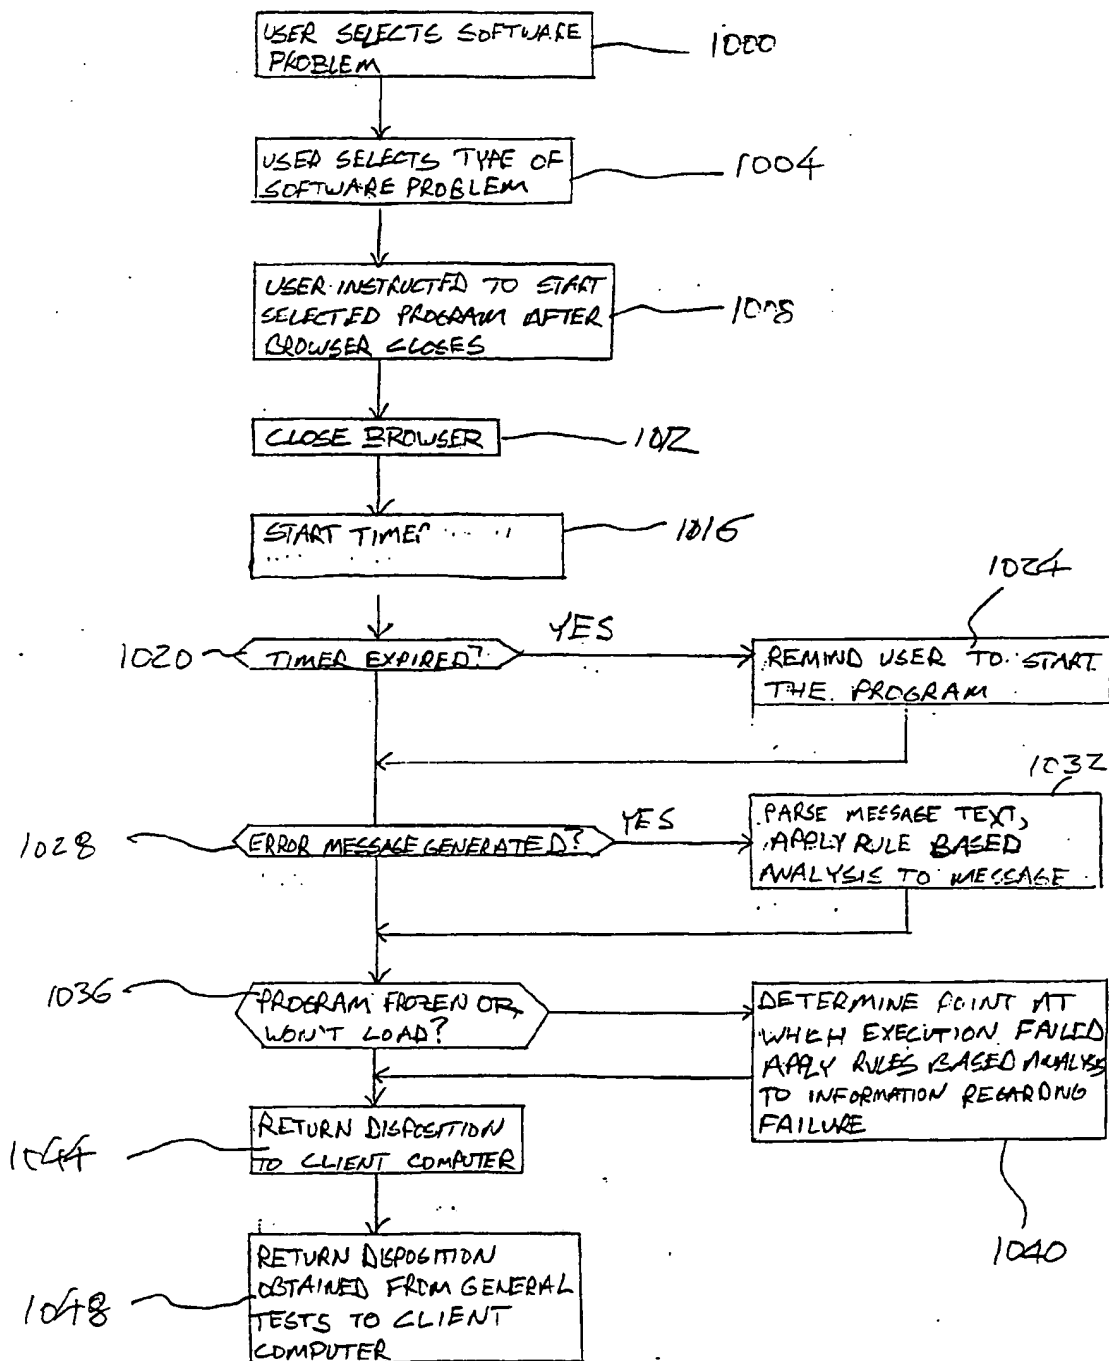 USER SELECTS SOFTWARE
PROBLEM
1000
USER SELECTS TYPE OF
SOFTWARE PROBLEM
1004
USER INSTRUCTED TO START
SELECTED PROGRAM AFTER
BROWSER CLOSES
1008
CLOSE BROWSER
1012
START TIMER
1016
1024
1020
TIMER EXPIRED?
YES
REMIND USER TO START
THE PROGRAM
1032
1028
ERROR MESSAGE GENERATED?
YES
PARSE MESSAGE TEXT,
APPLY RULE BASED
ANALYSIS TO MESSAGE
1036
PROGRAM FROZEN OR
WON'T LOAD?
DETERMINE POINT AT
WHICH EXECUTION FAILED
APPLY RULES BASED ANALYSIS
TO INFORMATION REGARDING
FAILURE
1040
1044
RETURN DISPOSITION
TO CLIENT COMPUTER
1048
RETURN DISPOSITION
OBTAINED FROM GENERAL
TESTS TO CLIENT
COMPUTER